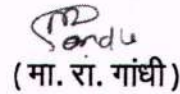 (मा. रा. गांधी)